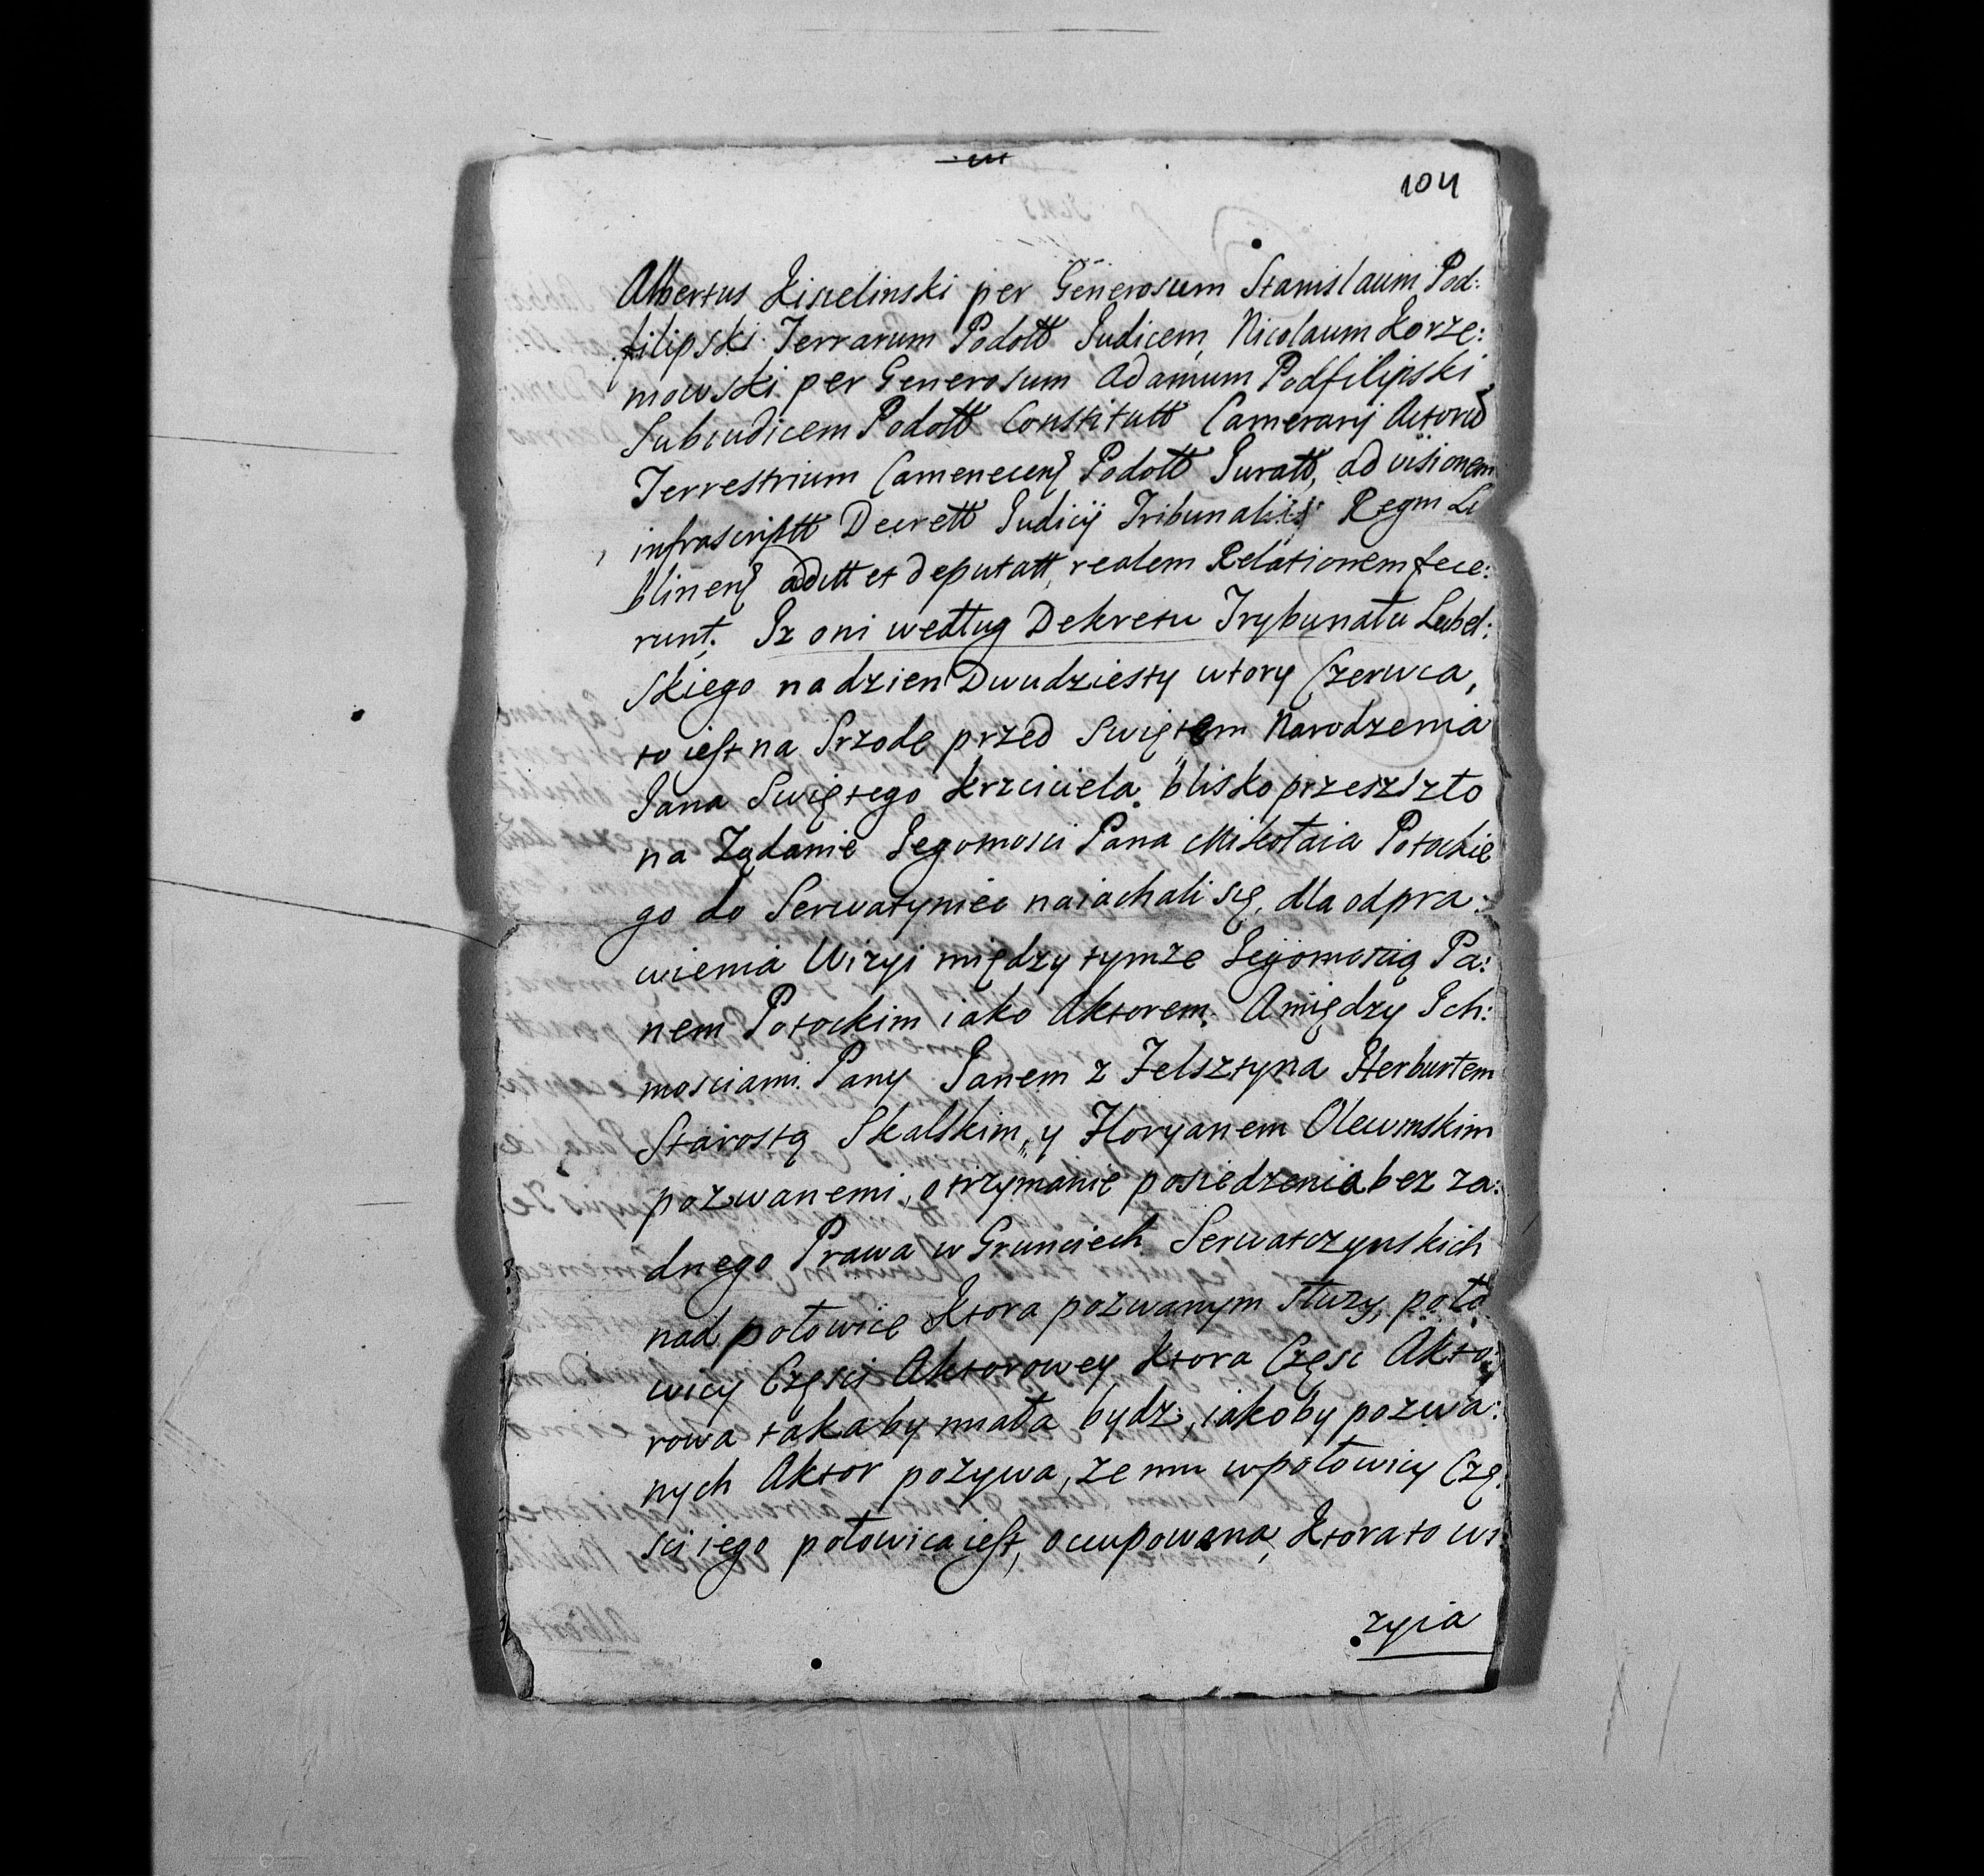 104
Albertus Kisielinski per Generosum Stanislaum Pod:
filipski Terrarum Podoll Judicem, Nicolaum Korze:
mowski per Generosum Adamum Podfilipski
Subiudicem Podoll Constitutt Camerarij Actorũ
Terrestrium Camenecen Podoll Juratt, ad visionem
infrascriptt Decrett Judicij Tribunalis Regni Lu
blinen additt et deputatt, realem Relationem fece:
runt. Iz oni według Dekretu Trybunału Lubel:
skiego na dzien Dwudziesty wtory Czerwca,
to iest na Srzode przed Swiętem Narodzenia
Jana Swiętego krzciciela blisko przeszszło
na Ządanie Jegomosci Pana Mikołaia Potockie
go do Serwatyniec naiachali się, dla odpra:
wienia Wizyi między tymże Jegomoscią Pa:
nem Potockim iako Aktorem. A między Ich:
mosciami Pany Janem z Felsztyna Herburtem
Starostą Skalskim, y Floryanem Olewinskim
pozwanemi, o trzymanie posiedzenia bez za:
dnego Prawa w Grunciech Serwatczynskich
nad połowice Ktora pozwanym służy, poło
wicy Części Aktorowey Ktora Częsc Akto:
rowa taka by miała bydz, iakoby pozwa:
nych Aktor pozywa, ze mu w połowicy Czę:
sci iego połowica iest, occupowana, Ktora to wi
zyia